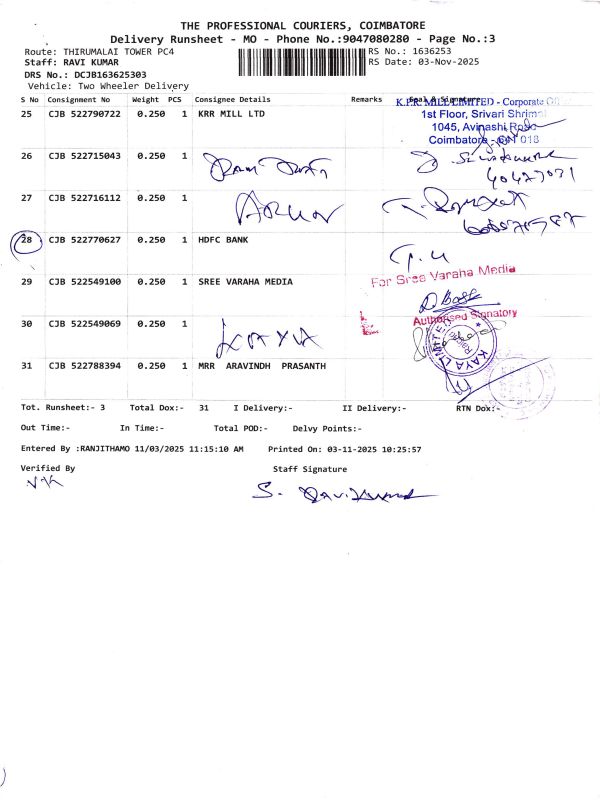 THE PROFESSIONAL COURIERS, COIMBATORE
Delivery Runsheet - MO - Phone No.:9047080280 - Page No.:3
Route: THIRUMALAI TOWER PC4 RS No.: 1636253
Staff: RAVI KUMAR RS Date: 03-Nov-2025
DRS No.: DCJB163625303
Vehicle: Two Wheeler Delivery
S No Consignment No Weight PCS Consignee Details Remarks Seal & Signature
25 CJB 522790722 0.250 1 KRR MILL LTD
K.P.R. MILL LIMITED - Corporate
1st Floor, Srivari Shrimat
1045, Avinashi Road
Coimbatore - 641 018
26 CJB 522715043 0.250 1
27 CJB 522716112 0.250 1 ARUN
28 CJB 522770627 0.250 1 HDFC BANK
29 CJB 522549100 0.250 1 SREE VARAHA MEDIA
For Sree Varaha Media
Authorised Signatory
30 CJB 522549069 0.250 1 KAYA
KAYA LIMITED
31 CJB 522788394 0.250 1 MRR ARAVINDH PRASANTH
Tot. Runsheet:- 3 Total Dox:- 31 I Delivery:- II Delivery:- RTN Dox:-
Out Time:- In Time:- Total POD:- Delvy Points:-
Entered By :RANJITHAMO 11/03/2025 11:15:10 AM Printed On: 03-11-2025 10:25:57
Verified By Staff Signature
S. Ravikumar